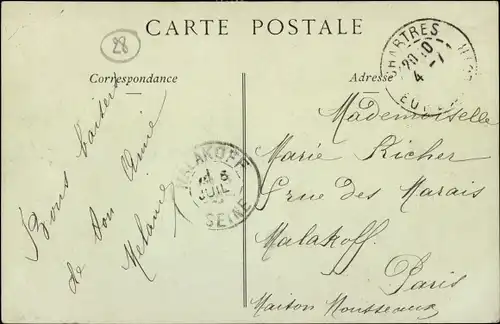 CARTE POSTALE
28
Correspondance
Adresse
Bons baisers
de ton Amie
Melanie
CHARTRES
20 10
4 - 7
MALAKOFF
5
JUIL
SEINE
Mademoiselle
Marie Richer
rue des Marais
Malakoff.
Paris
Maison Mousseaux